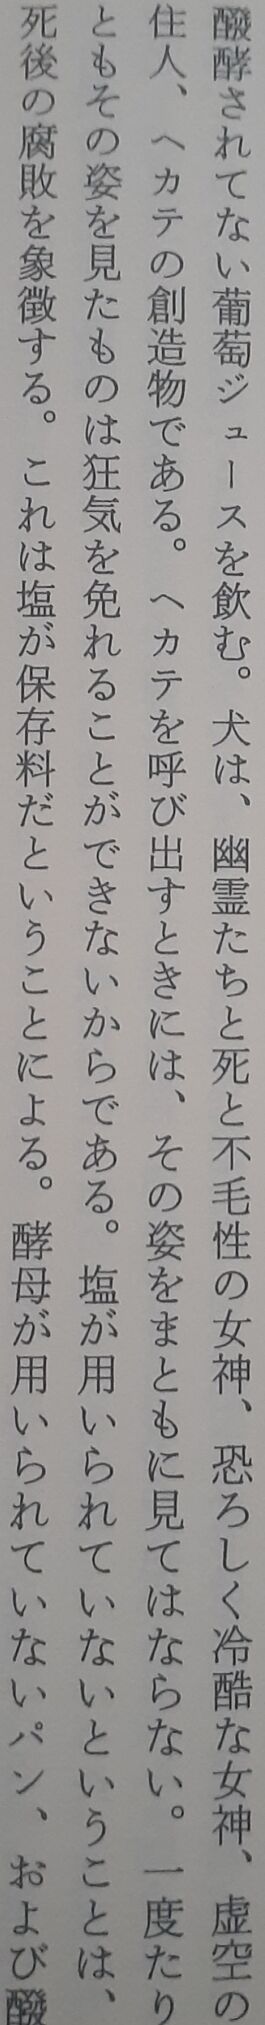 醱酵されてない葡萄ジュースを飲む。犬は、幽霊たちと死と不毛性の女神、恐ろしく冷酷な女神、虚空の
住人、ヘカテの創造物である。ヘカテを呼び出すときには、その姿をまともに見てはならない。一度たり
ともその姿を見たものは狂気を免れることができないからである。塩が用いられていないということは、
死後の腐敗を象徴する。これは塩が保存料だということによる。酵母が用いられていないパン、および醱